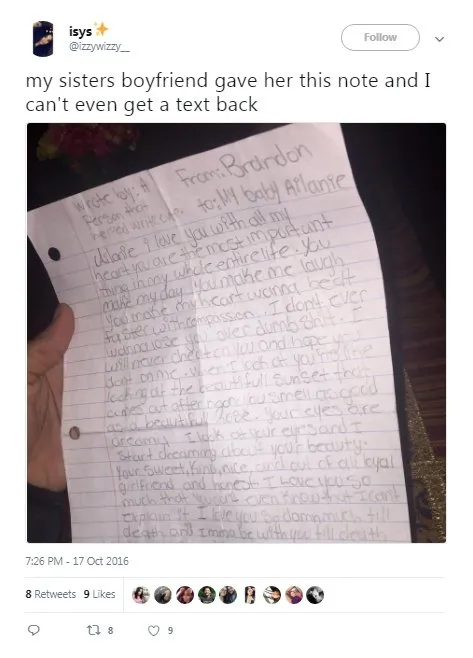 isys✨
@izzywizzy__
Follow
my sisters boyfriend gave her this note and I
can't even get a text back
From: Brandon
Wrote by: A
Person that
to: MY baby
I love you with all my
heart you are the most important
thing in my whole entire life. You
make my day. You make me laugh
You make my heart wanna beat
faster with compassion. I don't ever
wanna lose you over dumb shit. I
will never cheat on you and hope you
dont on me. When I look at you its like
looking at the beautifull sunset that
comes out after noon. You smell as good
as a beautifull rose. Your eyes are
dreamy. I look at your eyes and I
start dreaming about your beauty.
Your sweet, funny, nice, and out of all loyal
girlfriend and honest I Love you so
much that you even know that I cant
explain it. I love you so damn much till
death and imma be with you till death
7:26 PM - 17 Oct 2016
8 Retweets 9 Likes
8 9